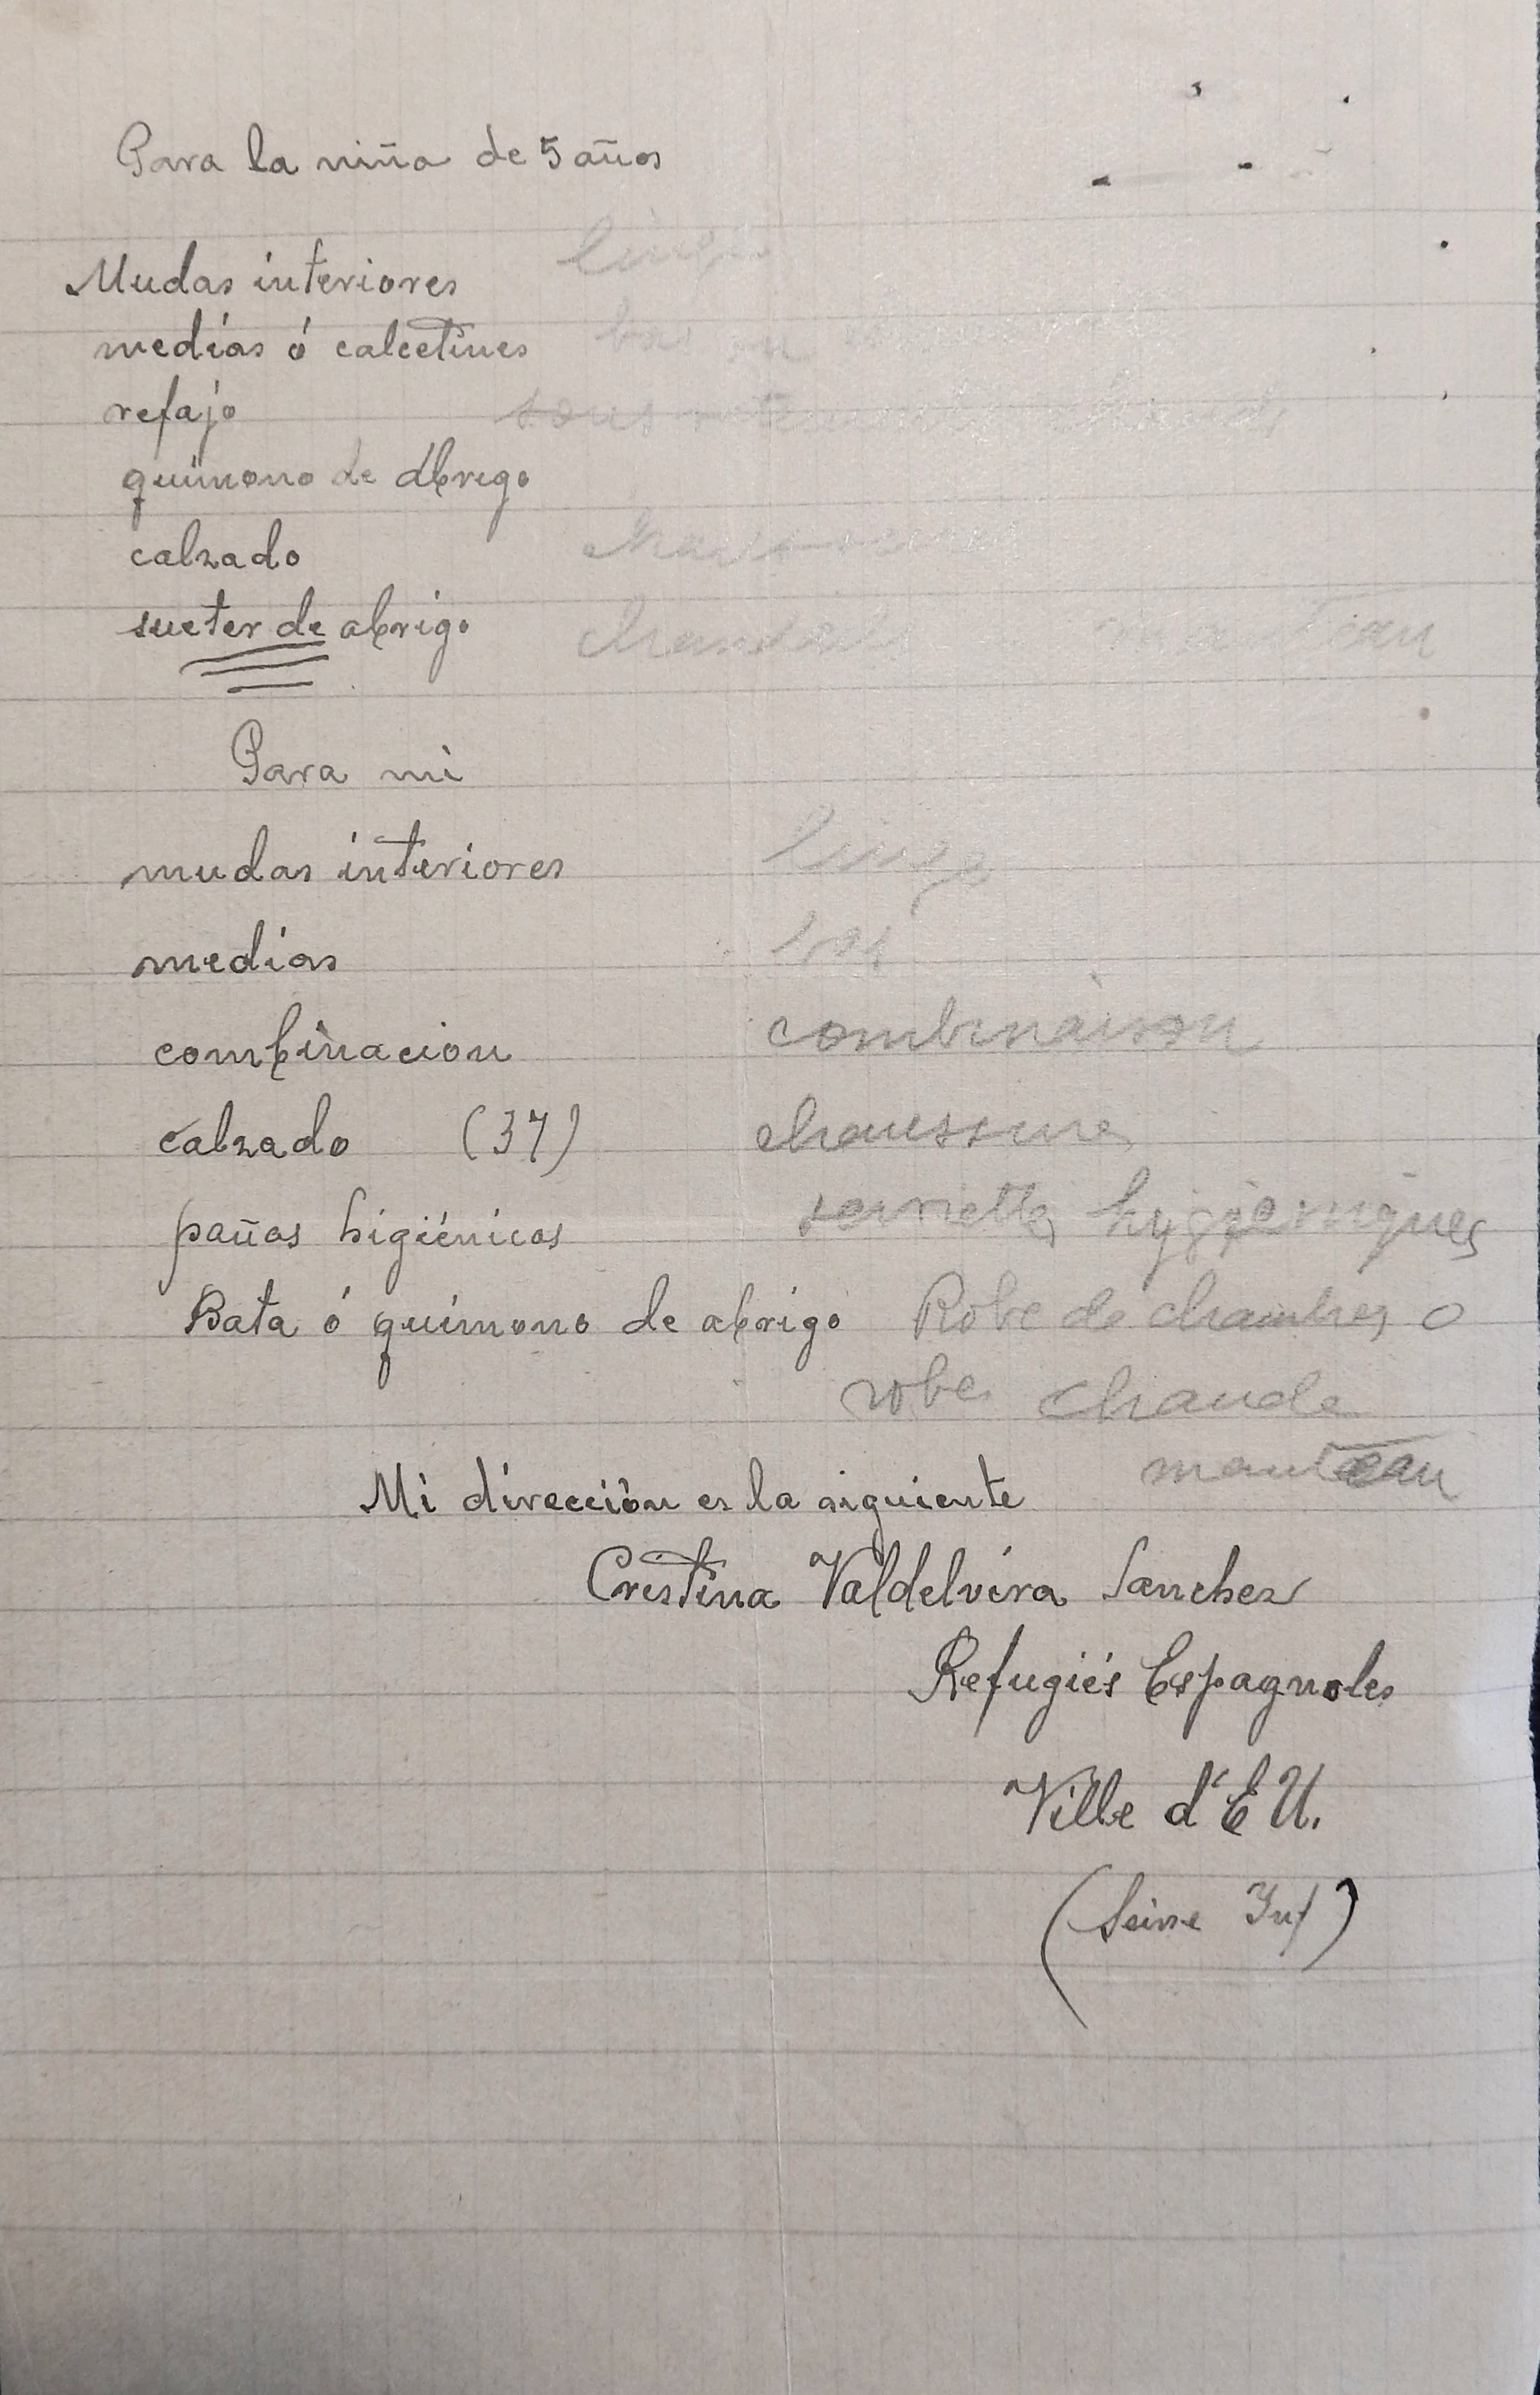 Para la niña de 5 años
Mudas interiores linge
medias ó calcetines bas ou
refajo sous
quimono de abrigo
calzado chaussures
sueter de abrigo chandail manteau
Para mi
mudas interiores linge
medias bas
combinacion combinaison
calzado (37) chaussures
paños higiénicos serviettes hygiéniques
Bata ó quimono de abrigo Robe de chambres o
robe chaude
manteau
Mi dirección es la siguiente
Cristina Valdelvira Sanchez
Refugiés Espagnoles
Ville d'EU.
(Seine Inf)